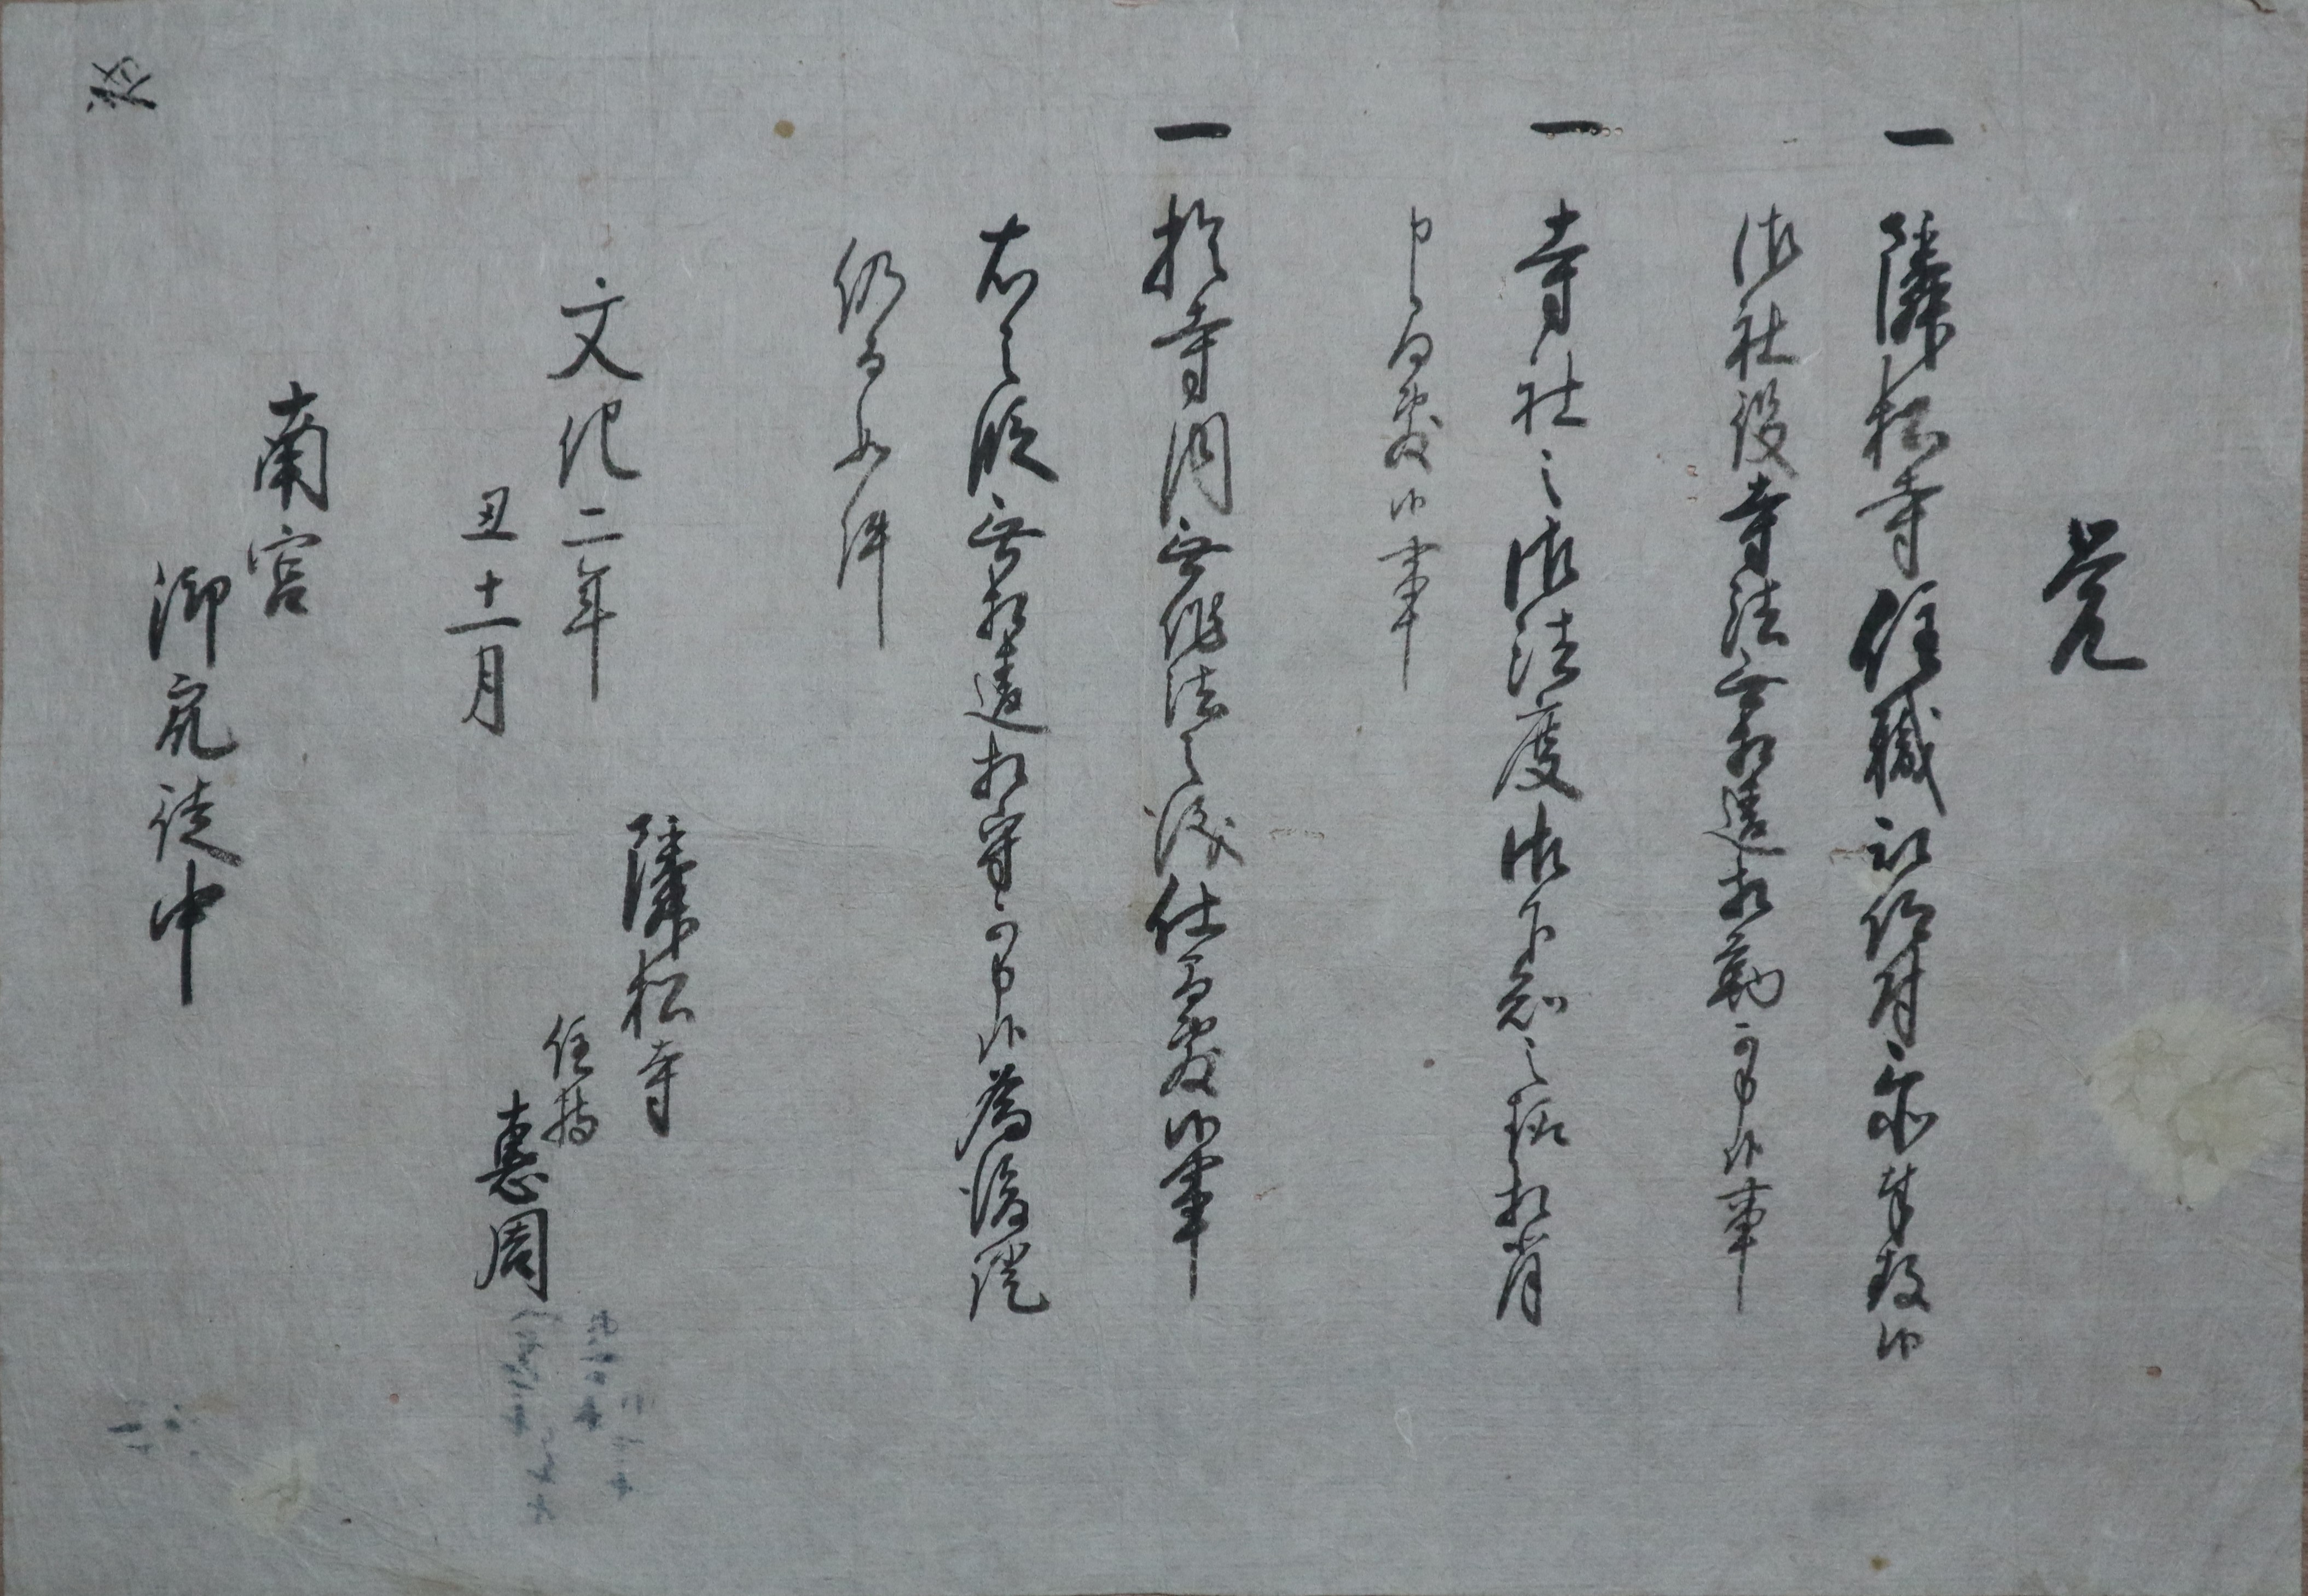 覚
一 隣松寺住職被仰付承知奉致候
御社役寺法無相違相勤可申候事
一 寺社之御法度御下知之趣相背
申間敷候事
一 於寺内無作法之儀仕間敷候事
右之段無相違相守可申候為後證
仍而如件
文化二年
丑十一月
隣松寺
住持
恵周
南宮
御衆徒中